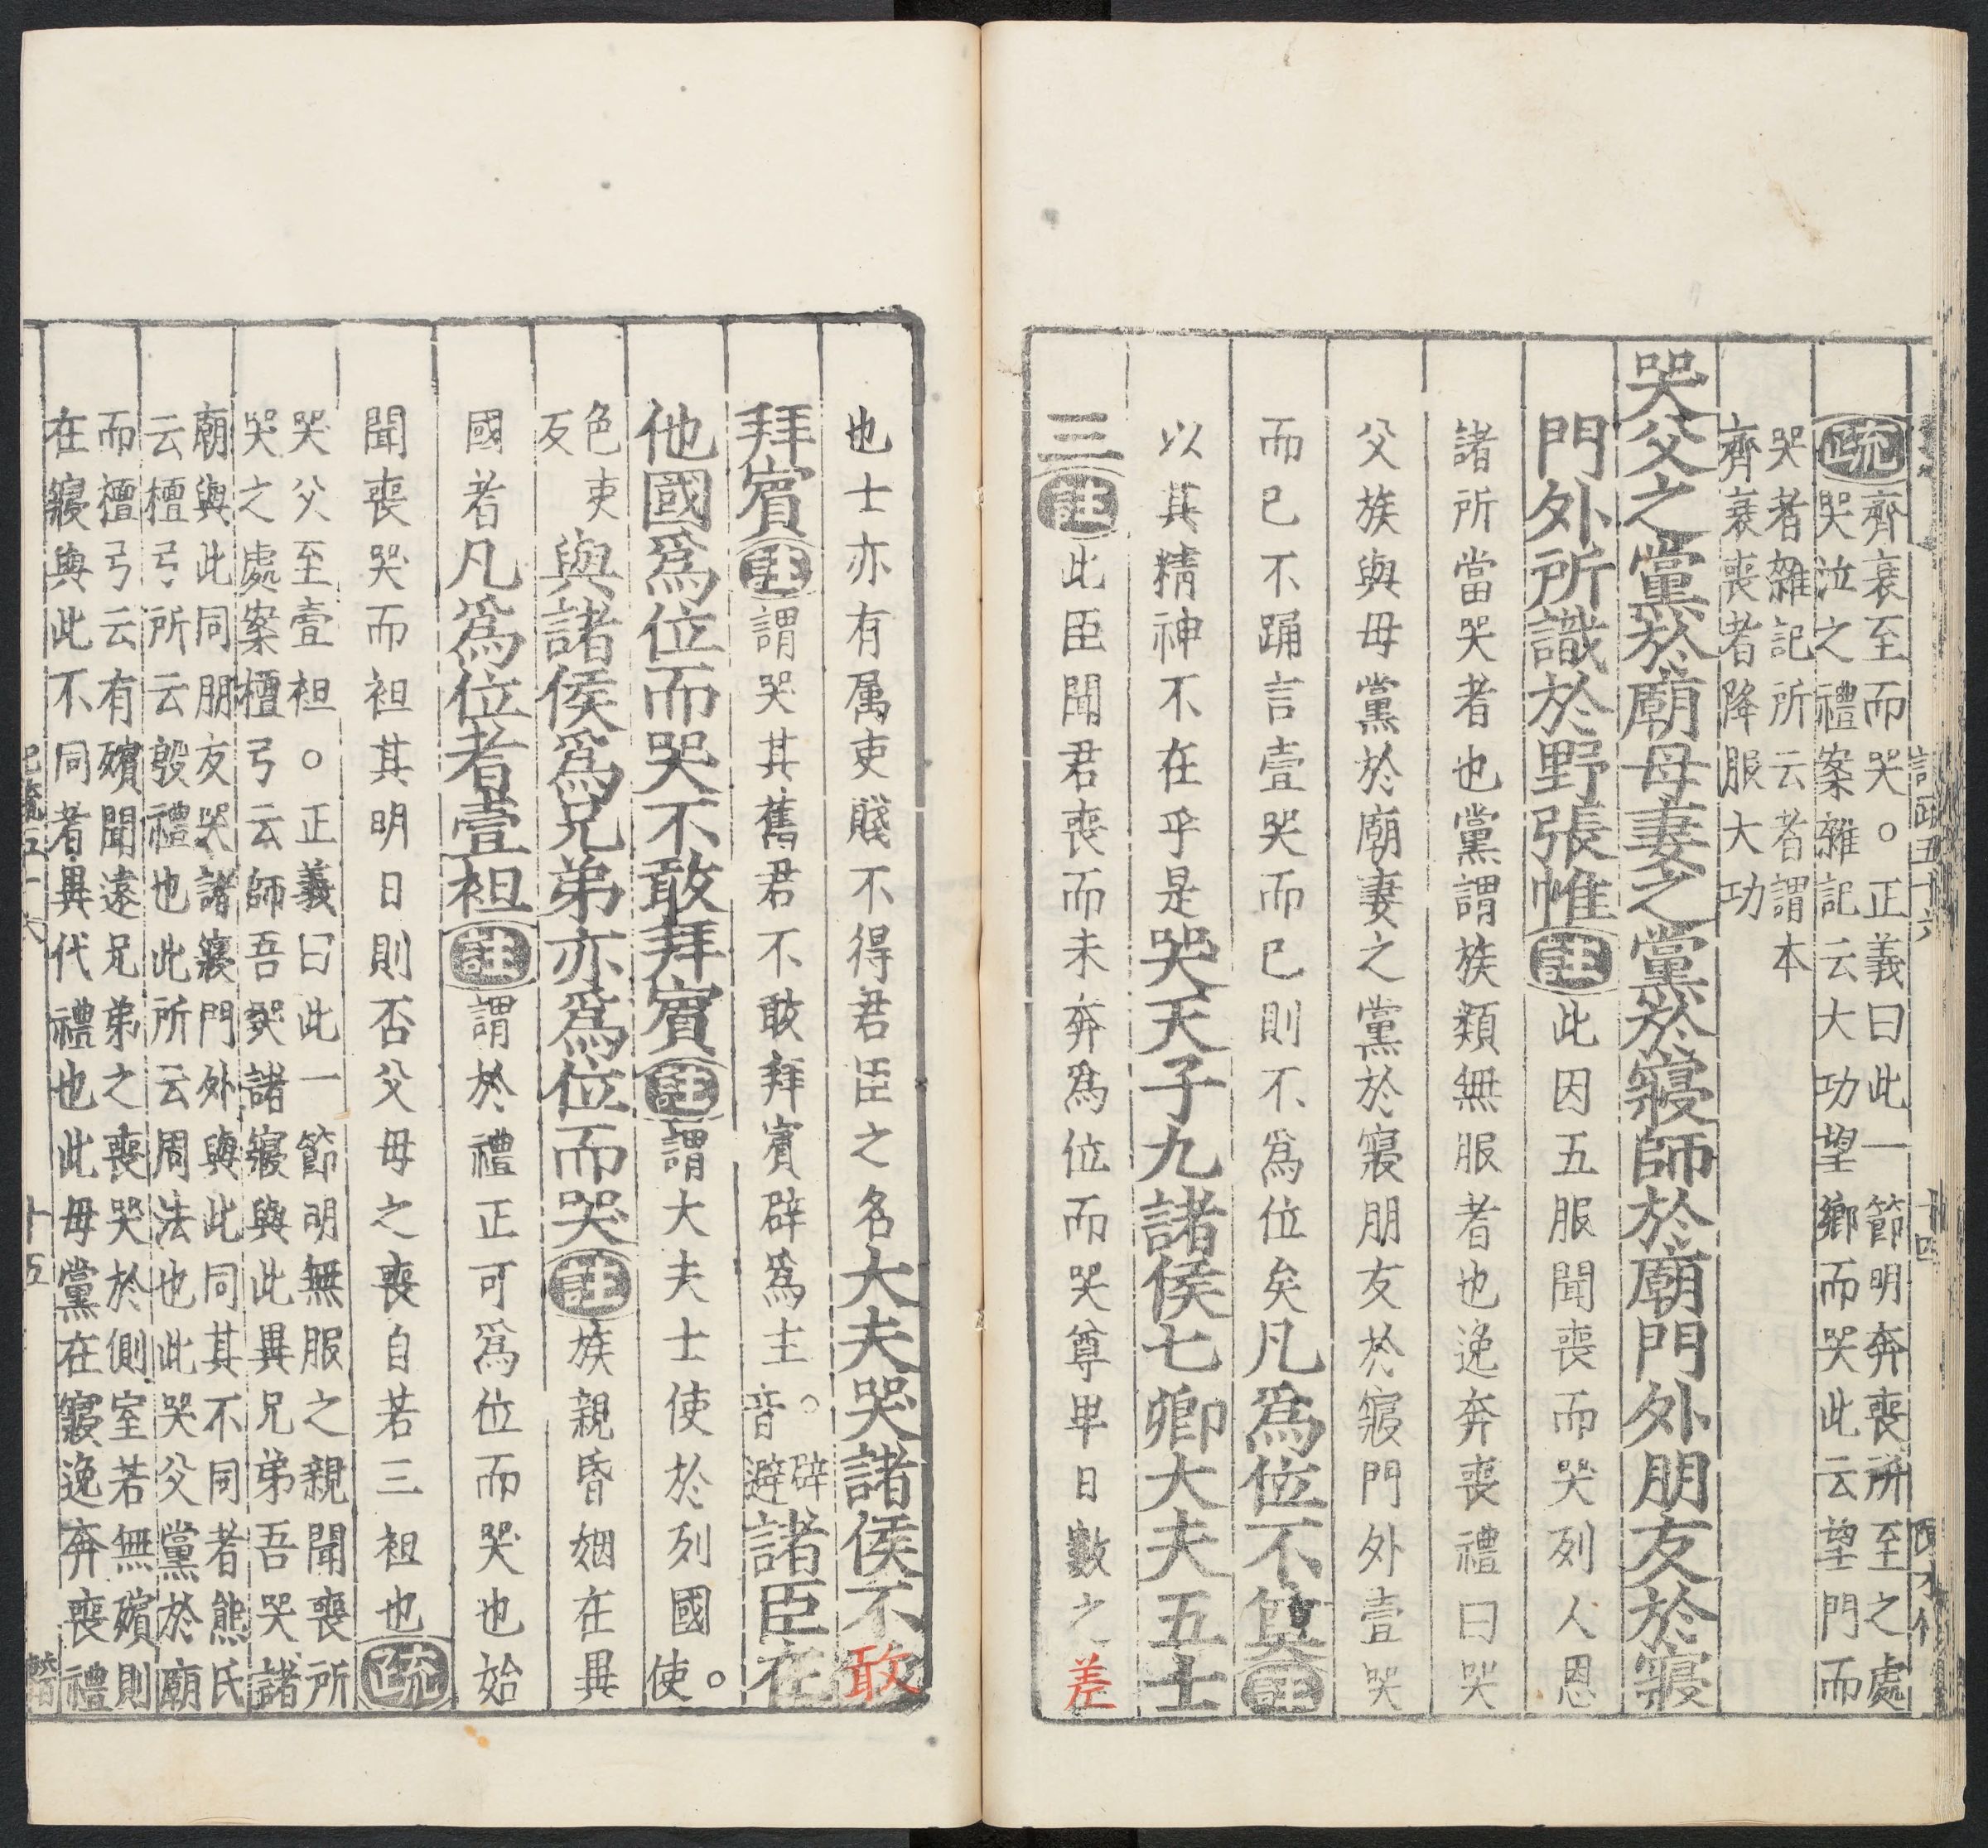 疏齊衰至而哭○正義曰此一節明奔喪所至之處
哭泣之禮案雜記云大功望鄉而哭此云望門而
哭者雜記所云者謂本
齊衰喪者降服大功
哭父之黨於廟母妻之黨於寢師於廟門外朋友於寢
門外所識於野張帷註此因五服聞喪而哭列人恩
諸所當哭者也黨謂族類無服者也逸奔喪禮曰哭
父族與母黨於廟妻之黨於寢朋友於寢門外壹哭
而已不踊言壹哭而已則不爲位矣凡爲位不奠註
以其精神不在乎是哭天子九諸侯七卿大夫五士
三註此臣聞君喪而未奔爲位而哭尊卑日數之差
也士亦有属吏賤不得君臣之名大夫哭諸侯不敢
拜賓註謂哭其舊君不敢拜賓辟爲主○辟音避諸臣在
他國爲位而哭不敢拜賓註謂大夫士使於列國○使
色吏反與諸侯爲兄弟亦爲位而哭註族親昏姻在異
國者凡爲位者壹袒註謂於禮正可爲位而哭也始
聞喪哭而袒其明日則否父母之喪自若三袒也疏
哭父至壹袒○正義曰此一節明無服之親聞喪所
哭之處案檀弓云師吾哭諸寢與此異兄弟吾哭諸
廟與此同朋友哭諸寢門外與此同其不同者熊氏
云檀弓所云殷禮也此所云周法也此哭父黨於廟
而檀弓云有殯聞遠兄弟之喪哭於側室若無殯則
在寢與此不同者異代禮也此母黨在寢逸奔喪禮
十五